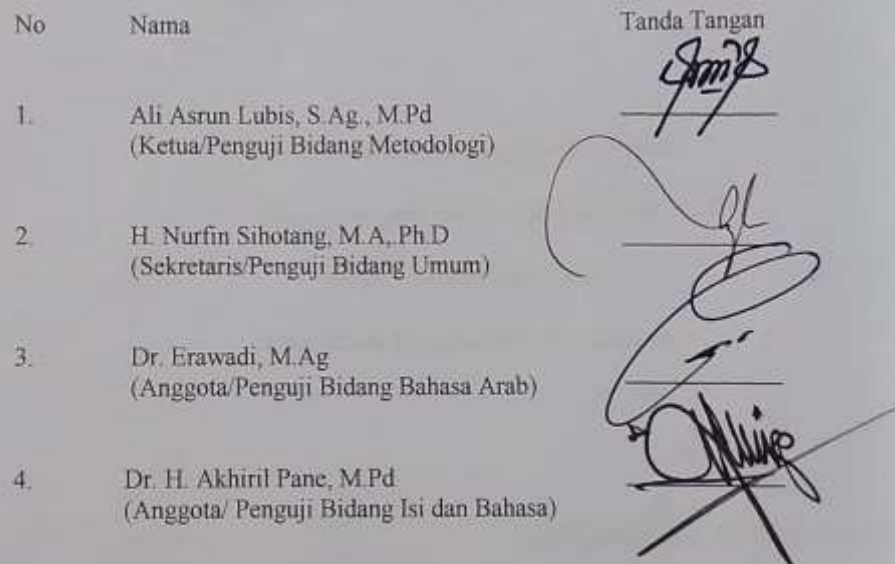 No Nama Tanda Tangan
1. Ali Asrun Lubis, S.Ag., M.Pd
(Ketua/Penguji Bidang Metodologi)
2. H. Nurfin Sihotang, M.A,.Ph.D
(Sekretaris/Penguji Bidang Umum)
3. Dr. Erawadi, M.Ag
(Anggota/Penguji Bidang Bahasa Arab)
4. Dr. H. Akhiril Pane, M.Pd
(Anggota/ Penguji Bidang Isi dan Bahasa)